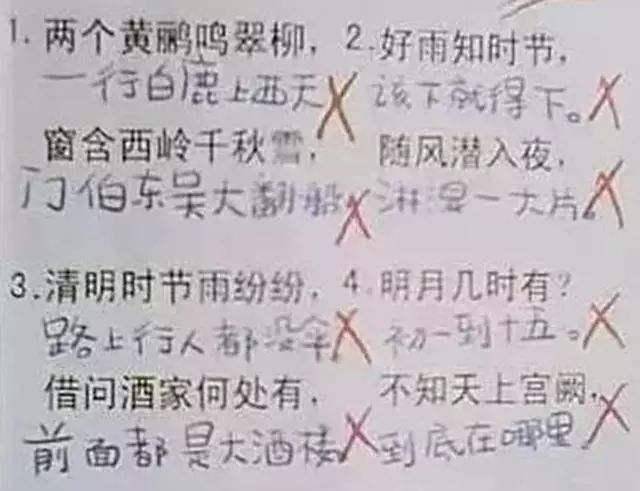 1. 两个黄鹂鸣翠柳，
一行白鹿上西天
窗含西岭千秋雪，
门伯东吴大翻船
2. 好雨知时节，
该下就得下。
随风潜入夜，
淋湿一大片。
3. 清明时节雨纷纷，
路上行人都没伞
借问酒家何处有，
前面都是大酒楼
4. 明月几时有？
初一到十五。
不知天上宫阙，
到底在哪里